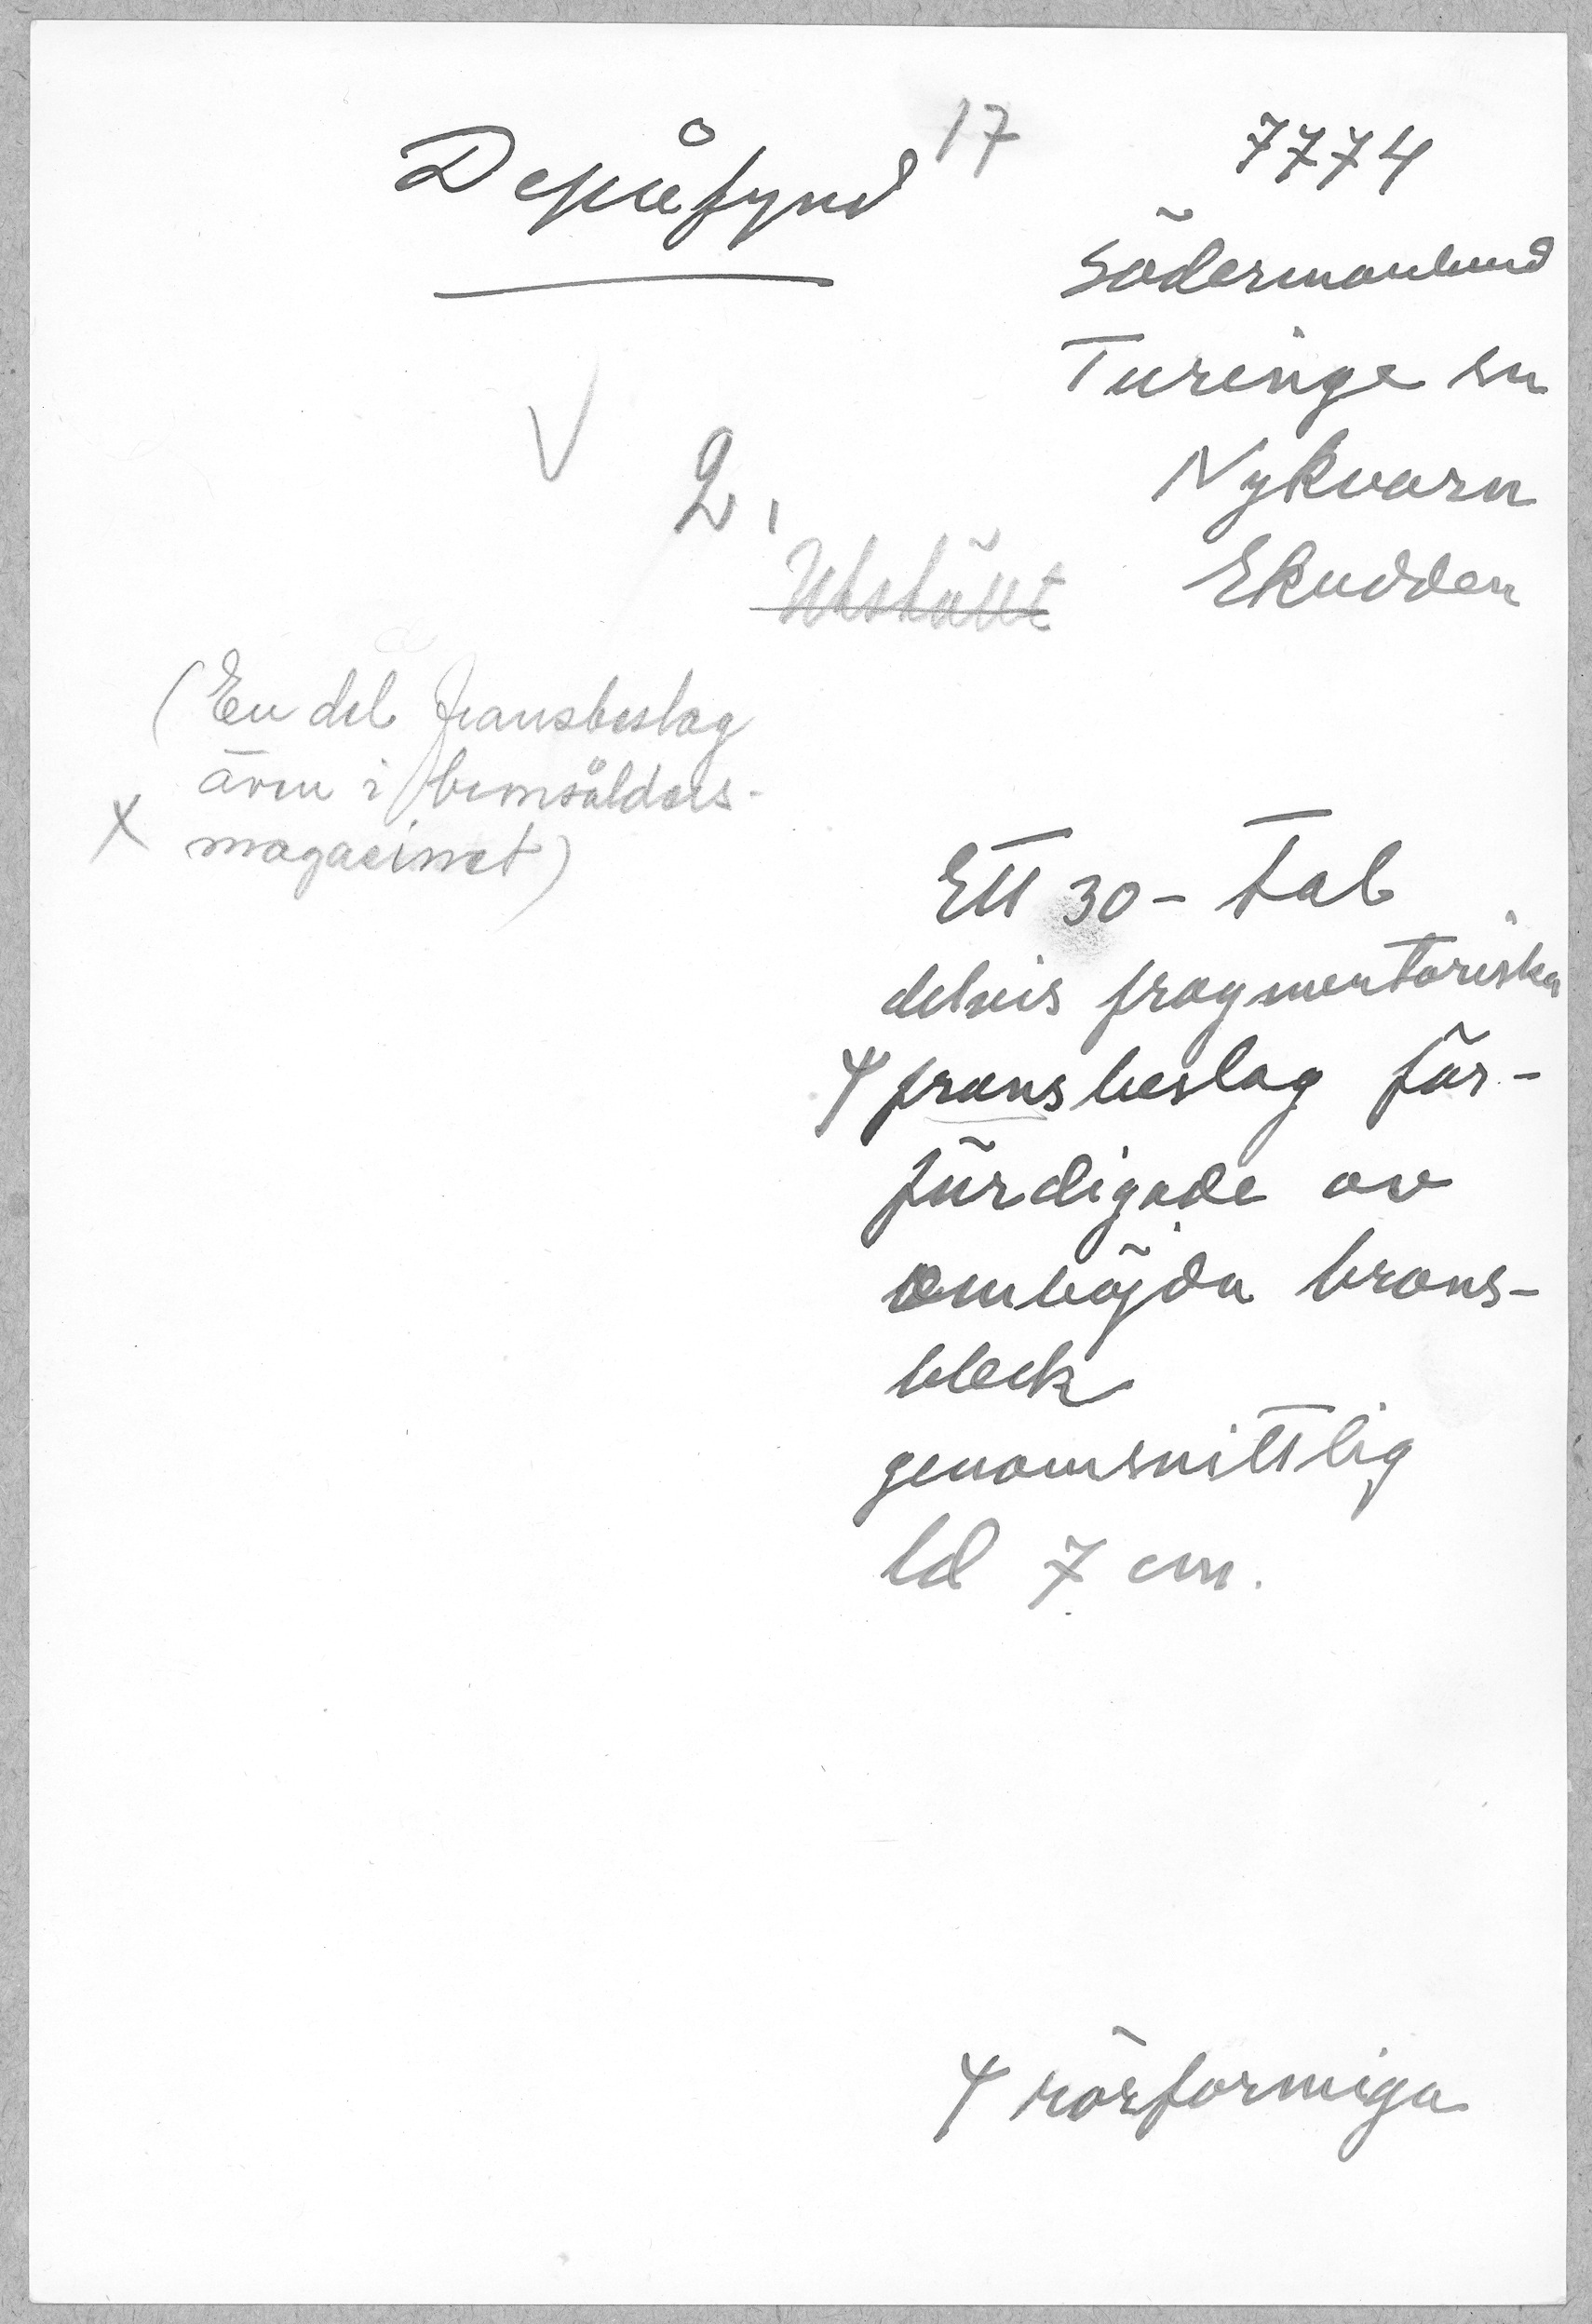 17
Depåfynd
7774
Södermanland
Turinge sn
Nykvarn
Ekudden
V
2.
Utställt
(En del fransbeslag
även i bronsålders-
X magasinet)
Ett 30-tal
delvis fragmentariska
fransbeslag för-
färdigade av
omböjda brons-
bleck
genomsnittlig
ld 7 cm.
rörformiga